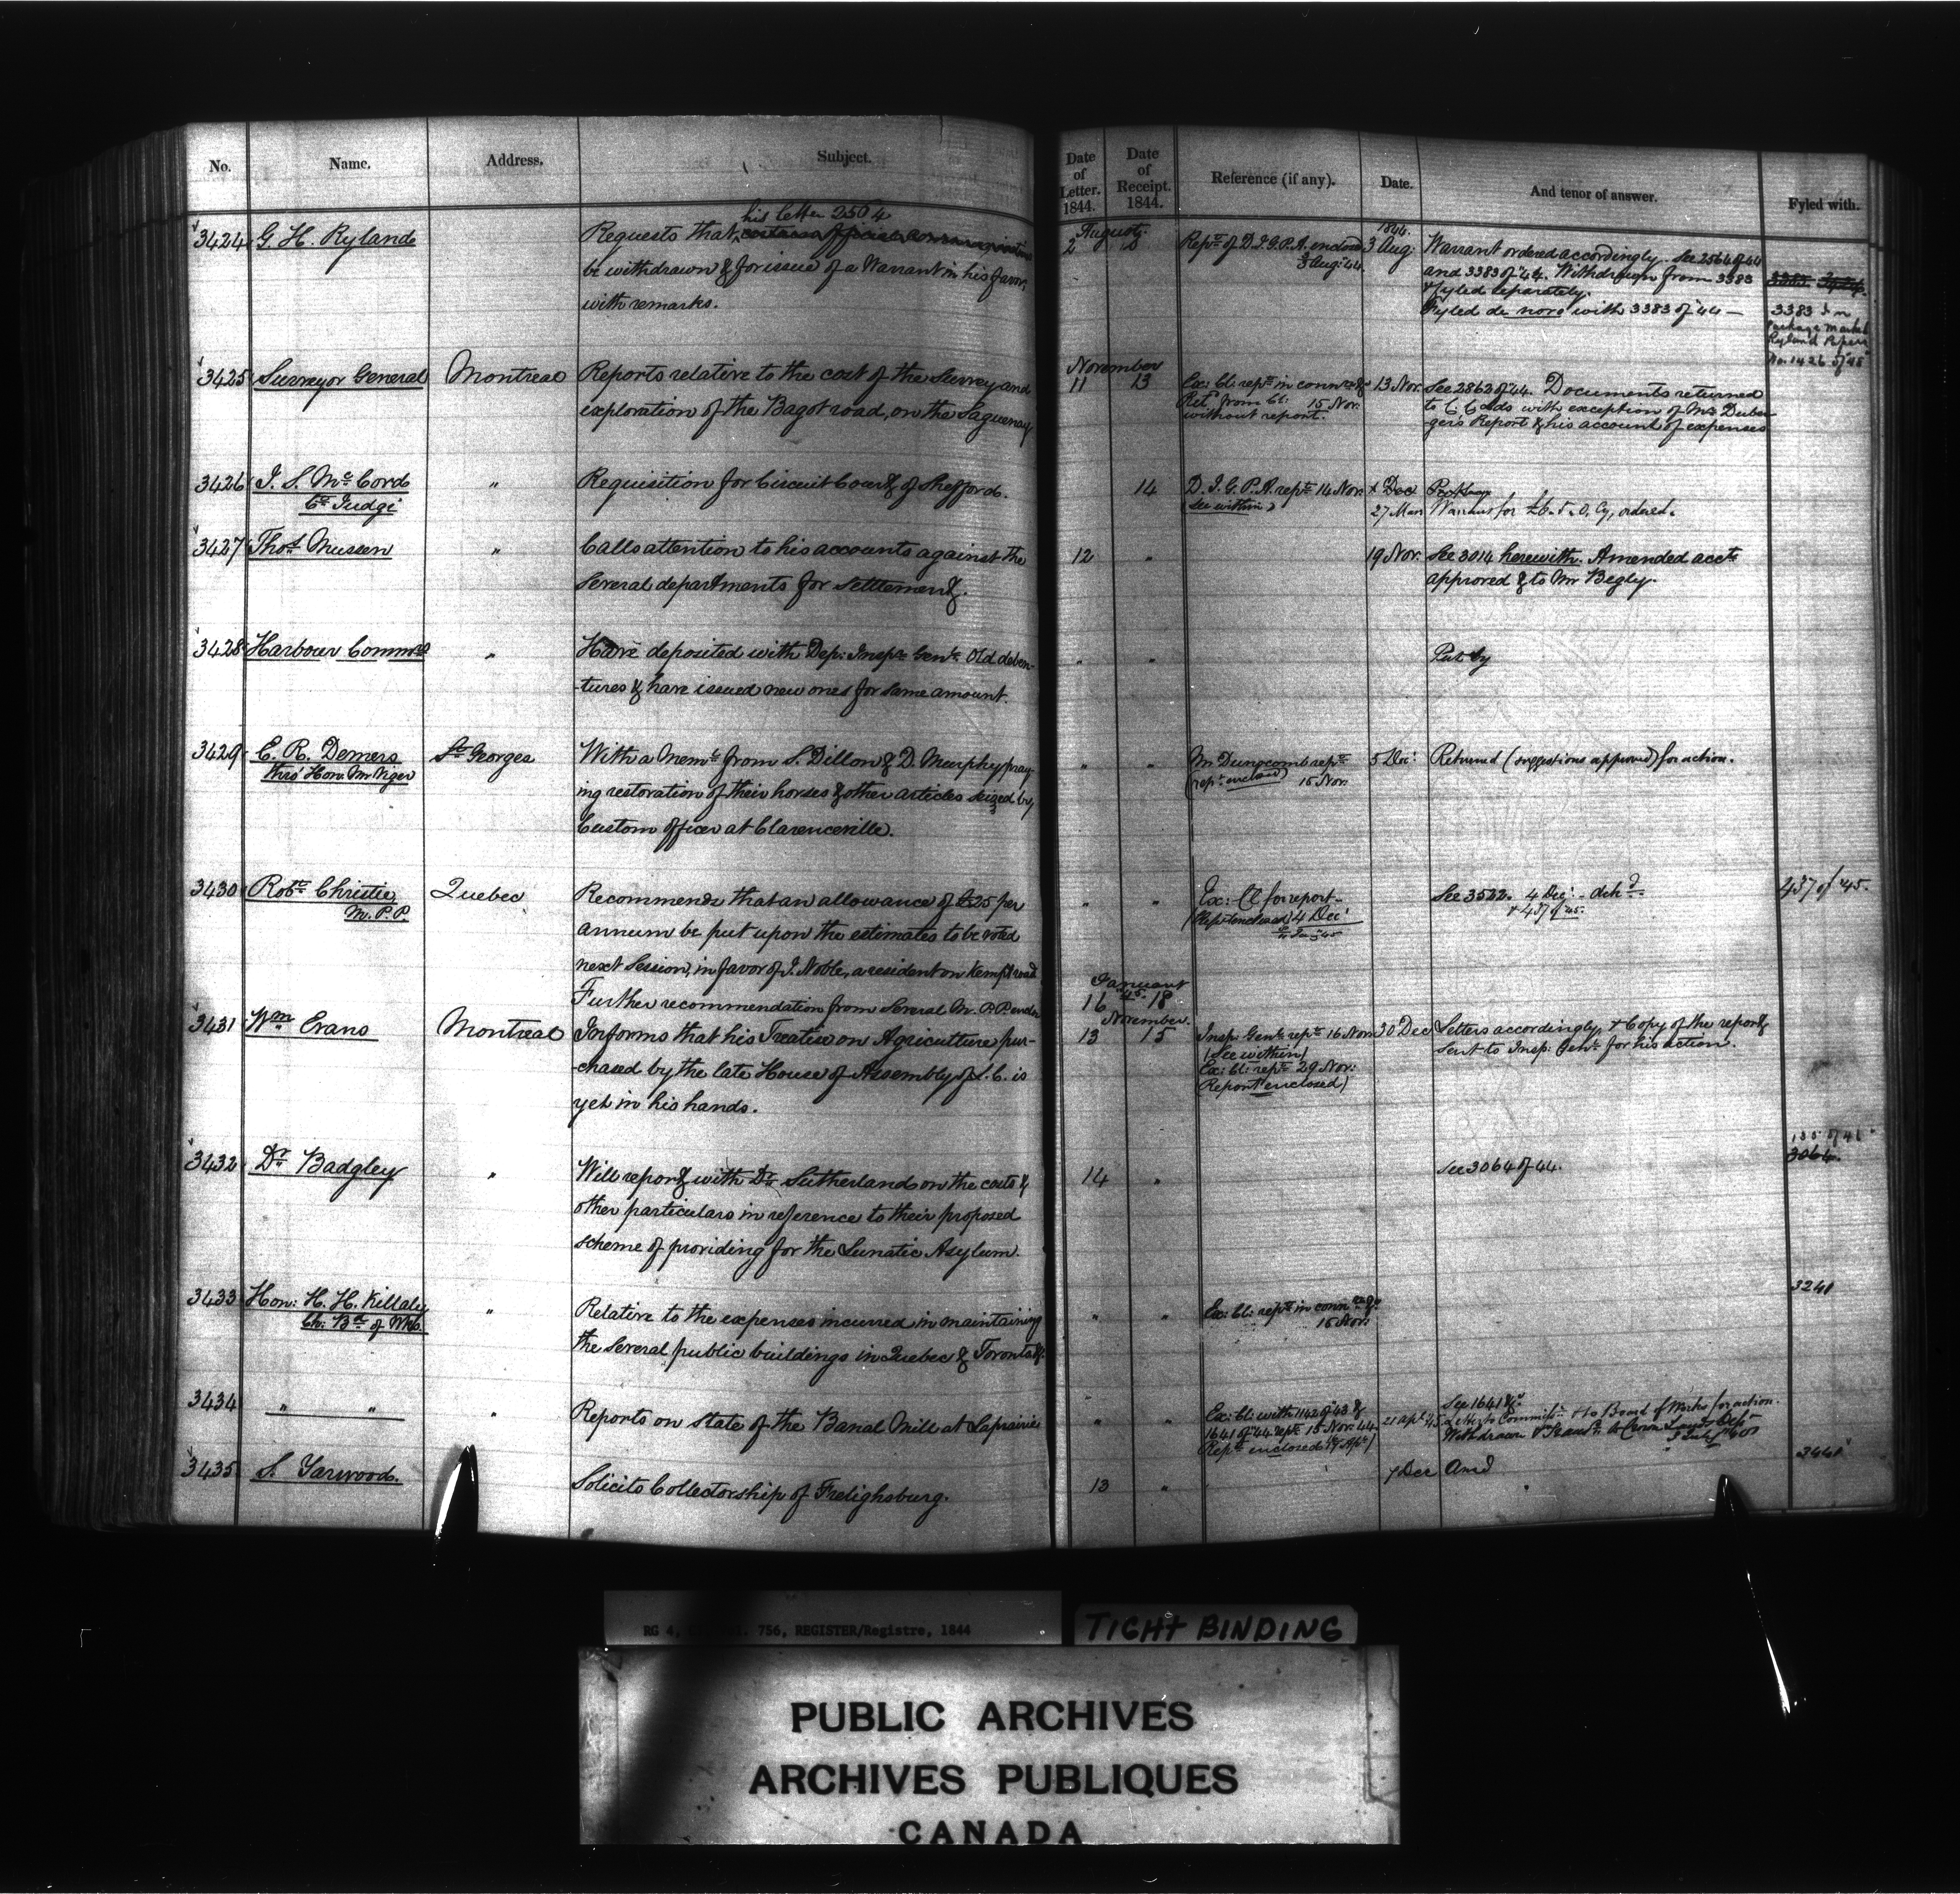 No. Name. Address. Subject. Date of Letter. 1844. Date of Receipt. 1844. Reference (if any). Date. And tenor of answer. Fyled with.
3424 G. H. Ryland Requests that his letter 2564
be withdrawn & for issue of a Warrant in his favor,
with remarks.
August
2 Rept. of D.I.G.P.A. enclosed
3 Aug: 44.
1844.
3 Aug: Warrant ordered accordingly. See 2564 of 44
and 3383 of '44. Withdrawn from 3383
& fyled separately.
Fyled de novo with 3383 of 44 —
3383 in
Package marked
Ryland Papers
No. 1426 of 45
3425 Surveyor General Montreal Reports relative to the cost of the Survey and
exploration of the Bagot road, on the Saguenay
November
11 13 Ex: Cl: rept. in
Ret. from Cl: 15 Nov.
without report.
13 Nov. See 2862 of 44. Documents returned
to with exception of Mr. Duber-
ger's Report & his account of expenses
3426 J. S. McCord " Requisition for Circuit Court of Shefford.
Ct. Judge
14 D. I. G. P. A. rept. 14 Nov.
(See within)
Dec
27 Mar Warrant for ordered.
3427 Thos. Museen " Calls attention to his accounts against the
several departments for settlement.
12 " 19 Nov. See 3014 herewith. Amended accts
approved & to Mr Begly.
3428 Harbour Commrs " Have deposited with Dep: Inspr. Genl. Old deben-
tures & have issued new ones for same amount.
" " Put by
3429 E. R. Demers St Georges With a Meml. from S. Dillon & D. Murphy pray-
thro' Hon. Mr Viger
ing restoration of their horses & other articles seized by
Custom officer at Clarenceville.
" " Mr. Dunscomb rept.
(rept. enclosed) 15 Nov.
5 Dec: Returned (suggestions approved) for action.
3430 Robt. Christie Quebec Recommends that an allowance of £25 per
M.P.P.
annum be put upon the estimates to be voted
next Session, in favor of J. Noble, a resident on Kempt road
Further recommendation from several M.P.P.
" " Ex: Cl for report —
(Rept. enclosed) 4 Dec:
See 3522. 4 Dec:
& 437 of 45.
437 of '45.
January
16 45 18
3431 Wm Evans Montreal Informs that his Treatise on Agriculture pur-
chased by the late House of Assembly of L.C. is
yet in his hands.
November.
13 15 Insp: Genl. rept. 16 Nov.
(See within)
Ex: Cl: rept. 29 Nov:
Report enclosed)
30 Dec Letters accordingly, & Copy of the report
sent to Insp: Genl. for his action.
3432 Dr. Badgley " Will report with Dr. Sutherland on the costs &
other particulars in reference to their proposed
scheme of providing for the Lunatic Asylum.
14 " See 3064 of 44.
3064.
3433 Hon: H. H. Killaly " Relative to the expenses incurred in maintaining
Ch: Bd. of Wks.
the several public buildings in Quebec & Toronto &c.
" " Ex: Cl: rept. in
15 Nov:
3241
3434 " " " Reports on state of the Banal Mill at Laprairie
" " Ex: Cl: with 1142 of 43 &
1641 of 44 rept. 15 Nov. 44.
Rept. enclosed
21 Apl. 45 See 1641 &c
Letter to Commissr. & to Board of Works for action.
Withdrawn & Crown Lands Dept
3435 S. Yarwood. Solicits Collectorship of Frelighsburg.
13 " 7 Dec Ansd
3461
RG 4, 756, REGISTER/Registre, 1844
TIGHT BINDING
PUBLIC ARCHIVES
ARCHIVES PUBLIQUES
CANADA